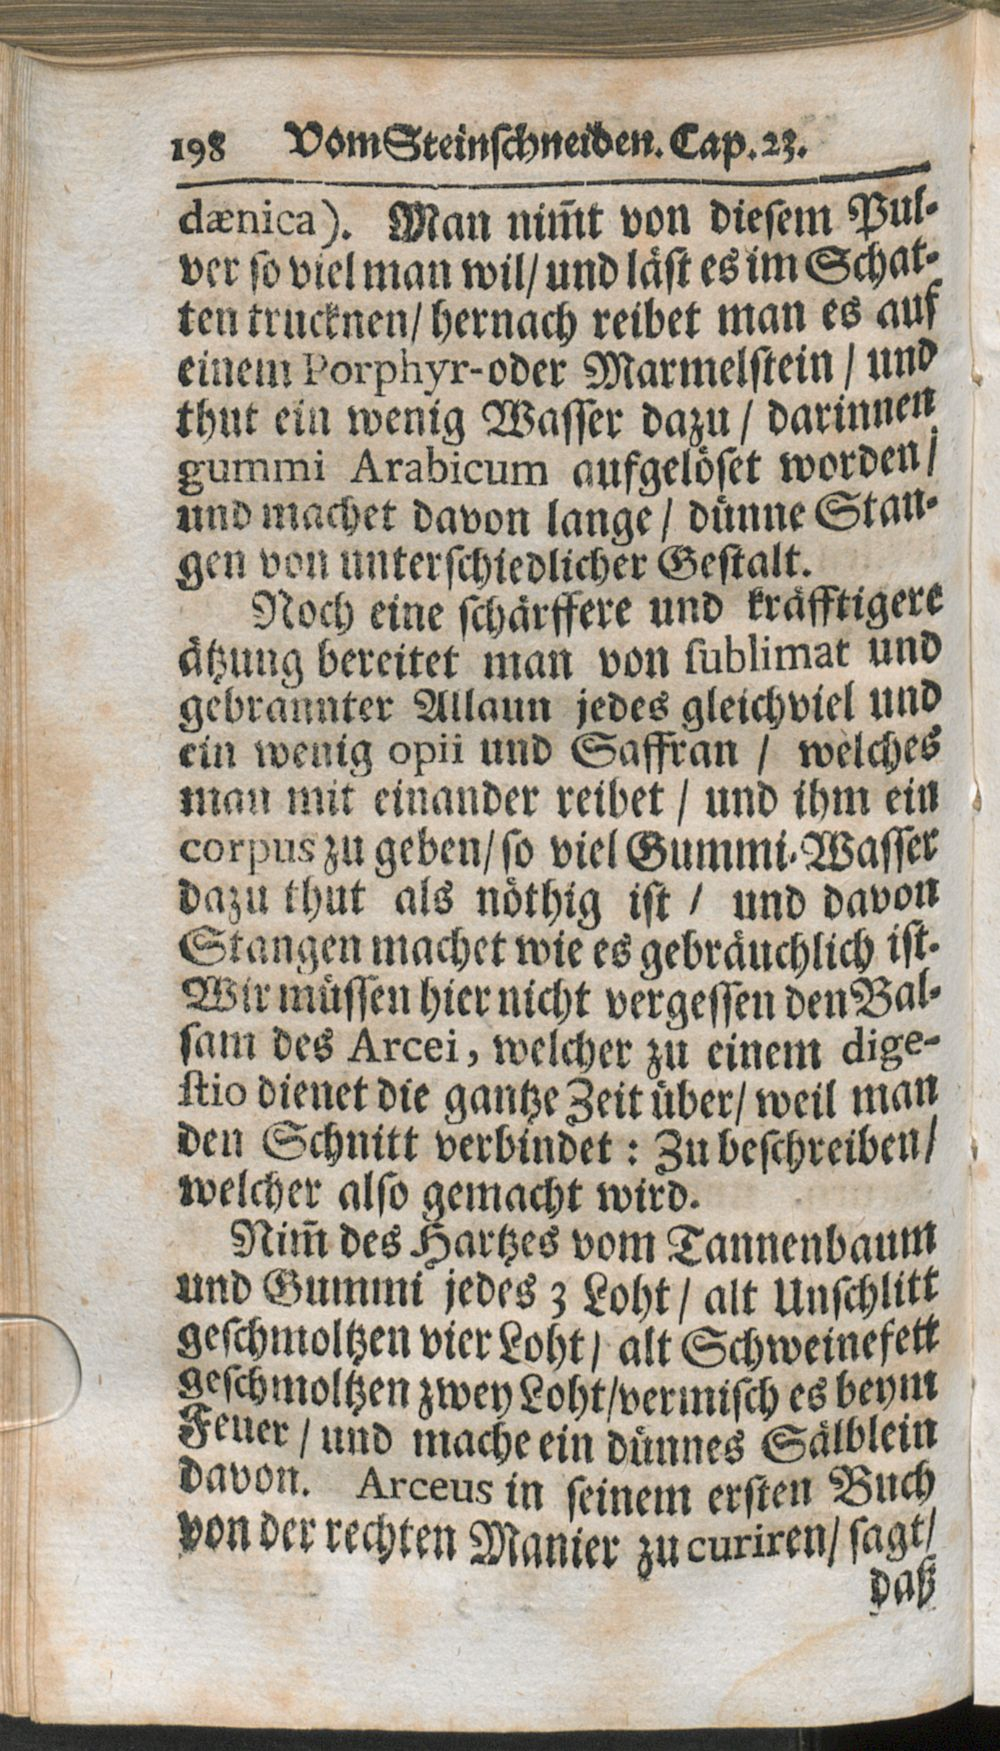 198 Vom Steinschneiden. Cap. 23.
dænica). Man nim̃t von diesem Pul-
ver so viel man wil/ und läst es im Schat-
ten trucknen/ hernach reibet man es auf
einem Porphyr-oder Marmelstein / und
thut ein wenig Wasser dazu / darinnen
gummi Arabicum aufgelöset worden/
und machet davon lange / dünne Stan-
gen von unterschiedlicher Gestalt.
Noch eine schärffere und kräfftigere
ätzung bereitet man von sublimat und
gebrannter Allaun jedes gleichviel und
ein wenig opii und Saffran / welches
man mit einander reibet / und ihm ein
corpus zu geben/ so viel Gummi-Wasser
dazu thut als nöthig ist / und davon
Stangen machet wie es gebräuchlich ist.
Wir müssen hier nicht vergessen den Bal-
sam des Arcei, welcher zu einem dige-
stio dienet die gantze Zeit über/ weil man
den Schnitt verbindet : Zu beschreiben/
welcher also gemacht wird.
Nim̃ des Hartzes vom Tannenbaum
und Gummi jedes 3 Loht / alt Unschlitt
geschmoltzen vier Loht/ alt Schweinefett
geschmoltzen zwey Loht/vermisch es beym
Feuer / und mache ein dünnes Sälblein
davon. Arceus in seinem ersten Buch
von der rechten Manier zu curiren/ sagt/
daß